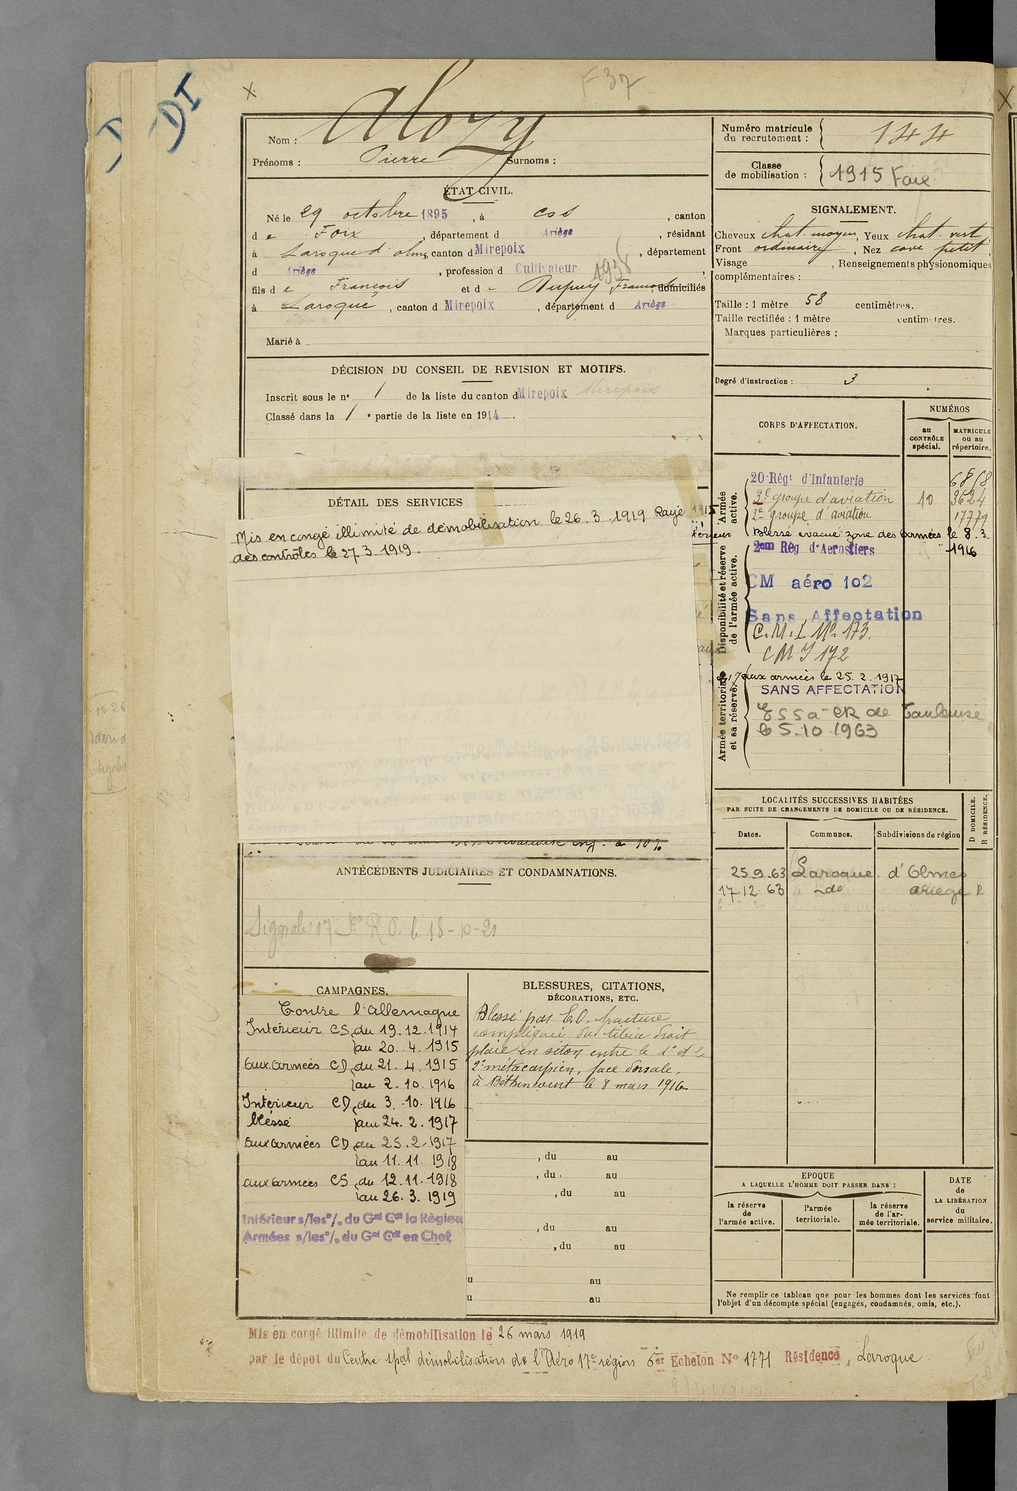 F 37
DI
Nom : Alozy
Prénoms : Pierre Surnoms :
ÉTAT CIVIL.
Né le 29 octobre 1895, à Cos, canton
de Foix, département d Ariège, résidant
à Laroque d'olmes canton d Mirepoix, département
d Ariège, profession d Cultivateur 1938
fils de François et de Dupuy domiciliés
à Laroque, canton d Mirepoix, département d Ariège
Marié à
DÉCISION DU CONSEIL DE REVISION ET MOTIFS.
Inscrit sous le n° 1 de la liste du canton d Mirepoix Mirepoix
Classé dans la 1° partie de la liste en 1914.
DÉTAIL DES SERVICES
Mis en congé illimité de démobilisation le 26.3.1919 Rayé
des contrôles le 27.3.1919.
ANTÉCÉDENTS JUDICIAIRES ET CONDAMNATIONS.
R.O. le 18-10-21
CAMPAGNES.
Contre l'Allemagne
Intérieur CS, du 19.12.1914
au 20.4.1915
aux armées CD, du 21.4.1915
au 2.10.1916
Intérieur CD, du 3.10.1916
blessé au 24.2.1917
aux armées CD, du 25.2.1917
au 11.11.1918
aux armées CS, du 12.11.1918
au 26.3.1919
Intérieur s/les °/. du Gal Cdt la Région
Armées s/les °/. du Gal Cdt en Chef
BLESSURES, CITATIONS,
DÉCORATIONS, ETC.
Blessé par E.O. fracture
compliquée du tibia droit
plaie en séton entre le 1er et le
2e métacarpien, face dorsale,
à Béthincourt le 8 mars 1916
, du au
, du au
, du au
, du au
, du au
u au
u au
Numéro matricule
du recrutement : 144
Classe
de mobilisation : 1915 Foix
SIGNALEMENT.
Cheveux chat. moyen, Yeux chat. vert
Front ordinaire, Nez cave petit,
Visage , Renseignements physionomiques
complémentaires :
Taille : 1 mètre 58 centimètres.
Taille rectifiée : 1 mètre centimètres.
Marques particulières :
Degré d'instruction : 3
CORPS D'AFFECTATION.
NUMÉROS
au
CONTRÔLE
spécial.
MATRICULE
ou au
répertoire.
Armée
active.
20e Régt d'Infanterie 6868
3e groupe d'aviation 10 3624
2e groupe d'aviation 17779
Blessé évacué zone des armées le 8.3.
1916
Disponibilité et réserve
de l'armée active.
2em Rég d'Aerostiers
CM aéro 102
Sans Affectation
C.M.I. No 173.
CMI 172
aux armées le 25.2.1917
Armée territoriale
et sa réserve.
SANS AFFECTATION
ESSa - CR de Toulouse
le 5.10.1963
LOCALITÉS SUCCESSIVES HABITÉES
PAR SUITE DE CHANGEMENTS DE DOMICILE OU DE RÉSIDENCE.
Dates. Communes. Subdivisions de région
D DOMICILE.
R RÉSIDENCE.
25.9.63 Laroque d'Olmes
17.12.63 do ariège R
EPOQUE
A LAQUELLE L'HOMME DOIT PASSER DANS :
la réserve
de
l'armée active.
l'armée
territoriale.
la réserve
de l'ar-
mée territoriale.
DATE
de
LA LIBÉRATION
du
service militaire.
Ne remplir ce tableau que pour les hommes dont les services font
l'objet d'un décompte spécial (engagés, condamnés, omis, etc.).
Mis en congé illimité de démobilisation le 26 mars 1919
par le dépot du Centre spal démobilisation de l'Aéro 17e région 6er Echelon No 1771 Résidence, Laroque